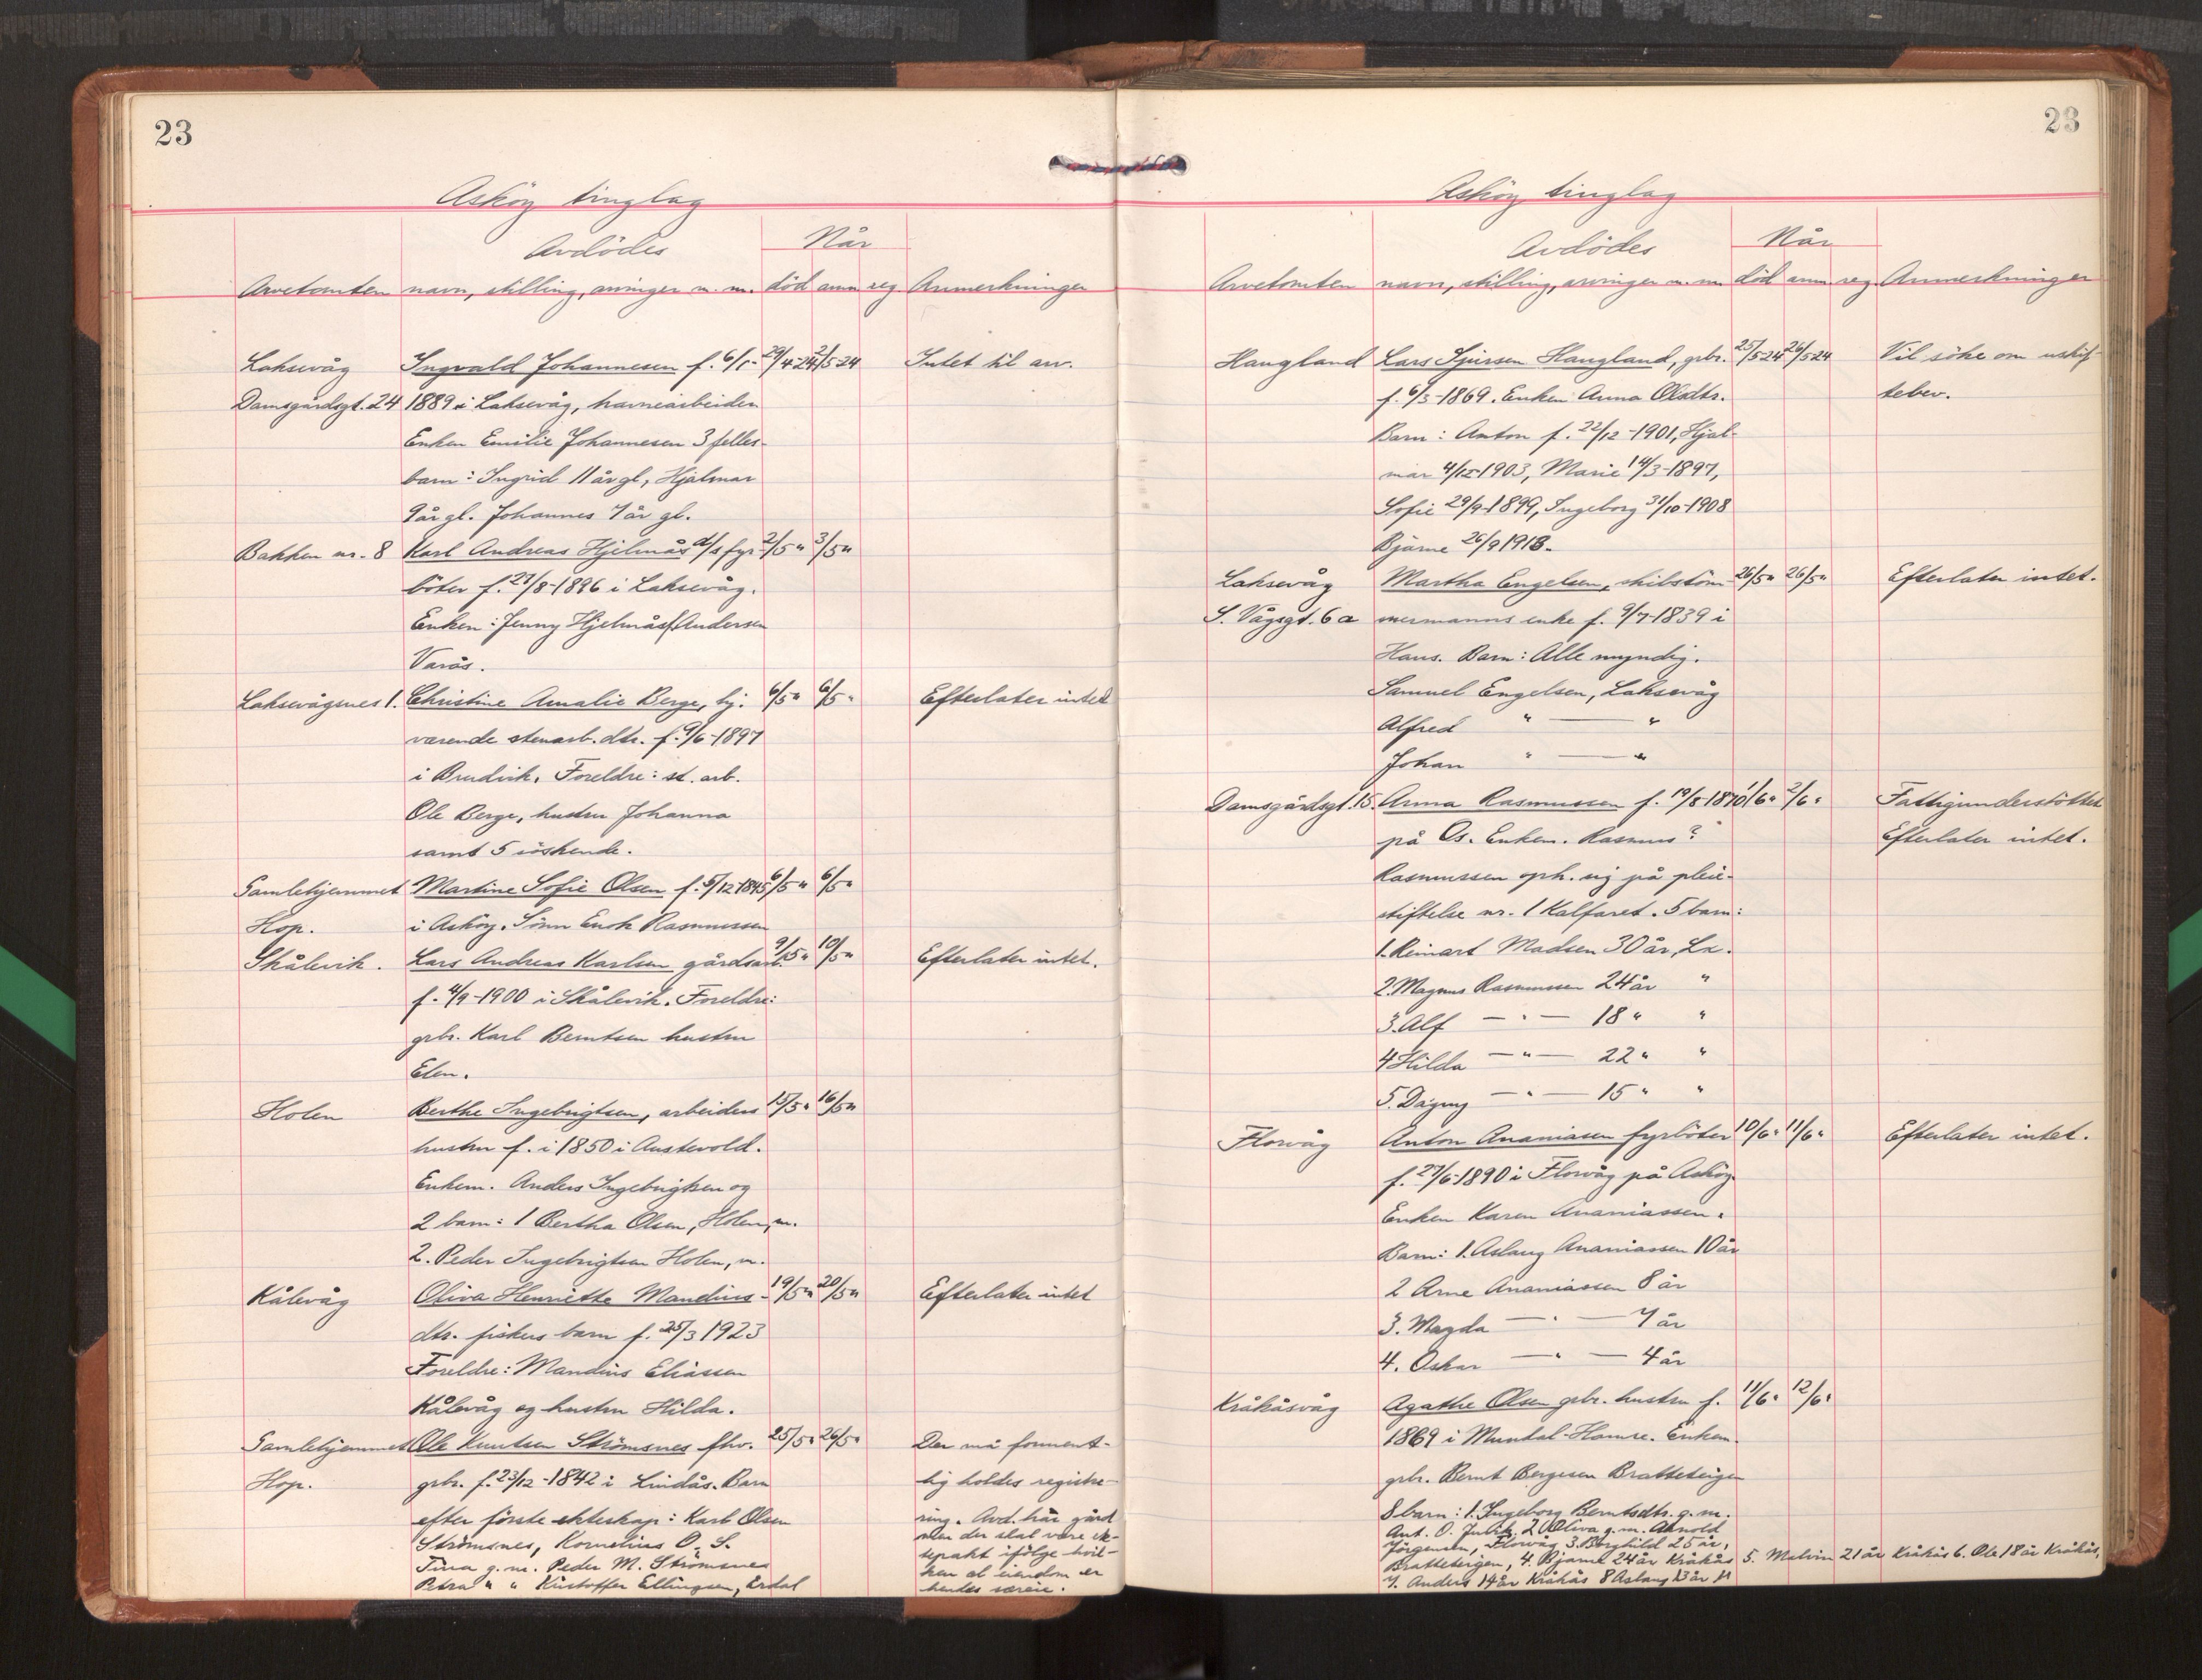 23
Asköy tinglag
Avdödes
Når
Arvetomten navn, stilling, arvinger m. m. död anm. reg. Anmerkninger
Laksevåg Ingvald Johannesen f. 6/1- 29/4-24 2/5-24 Intet til arv.
Damsgårdsgt. 24 1889 i Laksevåg, havnearbeider
Enken Emilie Johannesen 3 felles-
barn: Ingrid 11 år gl, Hjalmar
9 år gl. Johannes 7 år gl.
Bakken nr. 8 Karl Andreas Hjelmås d/s fyr- 2/5 " 3/5 "
böter f. 27/8-1896 i Laksevåg.
Enken: Jenny Hjelmås f. Andersen
Varås.
Laksevågsnes 1. Christine Amalie Berge, hj. 6/5 " 6/5 " Efterlater intet
værende stenarb. dtr. f. 9/6-1897
i Bruvik. Foreldre: st. arb.
Ole Berge, hustru Johanna
samt 5 söskende.
Gamlehjemmet Martine Sofie Olsen f. 5/12 1845 6/5 " 6/5 "
Hop. i Asköy. Sönn Enok Rasmussen
Skålevik. Lars Andreas Karlsen gårdsarb. 9/5 " 10/5 " Efterlater intet.
f. 4/9-1900 i Skålevik. Foreldre:
grbr. Karl Berntsen hustru
Elen.
Holen Berthe Ingebrigtsen, arbeiders 15/5 " 16/5 "
hustru f. i 1850 i Austevold.
Enkem. Anders Ingebrigtsen og
2 barn: 1 Bertha Olsen, Holen, m.
2. Peder Ingebrigtsen Holen, m.
Kålevåg Oliva Henriette Mandius- 19/5 " 20/5 " Efterlater intet
dtr. fiskers barn f. 25/3 1923
Foreldre: Mandius Eliassen
Kålevåg og hustru Hilda.
Gamlehjemmet Ole Knutsen Strömsnes fhv. 25/5 " 26/5 " Der må forment-
Hop. grbr. f. 23/12-1842 i Lindås. Barn lig holdes registre-
efter förste ekteskap: Karl Olsen ring. Avd. har gård
Strömsnes, Kornelius O. S. men der skal være ek-
Tina g. m. Peder M. Strömsnes tepakt ifölge hvil-
Petra " " Kristoffer Ellingsen, Erdal ken al eiendom er
hendes særeie.
23
Asköy tinglag
Avdödes
Når
Arvetomten navn, stilling, arvinger m. m. död anm. reg. Anmerkninger
Haugland Lars Sjursen Haugland, grbr. 25/5 24 26/5 24 Vil söke om uskif-
f. 6/3-1869. Enken Anna Olsdtr. tebev.
Barn: Anton f. 22/12-1901, Hjal-
mar 4/12-1903, Marie 14/3-1897,
Sofie 29/9-1899, Ingeborg 31/10-1908
Bjarne 26/9 1918.
Laksevåg Martha Engelsen, skibstöm- 26/5 " 26/5 " Efterlater intet.
S. Vågsgt. 6 a mermanns enke f. 9/7-1839 i
Haus. Barn: Alle myndig.
Samuel Engelsen, Laksevåg
Alfred " — "
Johan " — "
Damsgårdsgt. 15. Anna Rasmussen f. 19/8-1870 1/6 " 2/6 " Fattigunderstöttet
på Os. Enkem. Rasmus? Efterlater intet.
Rasmussen oph. sig på pleie-
stiftelse nr. 1 Kalfaret. 5 barn:
1. Reinart Madsen 30 år, La.
2. Magnus Rasmussen 24 år "
3. Alf — " — 18 " "
4 Hilda — " — 22 " "
5. Dagny — " — 15 " "
Florvåg Anton Ananiasen fyrböter 10/6 " 11/6 " Efterlater intet.
f. 27/6-1890 i Florvåg på Asköy.
Enken Karen Ananiassen.
Barn: 1. Aslaug Ananiassen 10 år
2 Arne Ananiassen 8 år
3. Magda — " — 7 år
4. Oskar — " — 4 år
Kråkåsvåg Agathe Olsen grbr. hustru f. 11/6 " 12/6 "
1869 i Mundal-Hamre. Enkem.
grbr. Bernt Bergesen Bratteteigen
8 barn: 1. Ingeborg Berntsdtr. g. m.
Ant. O. Juvik, 2 Oliva g. m. Arnold
Jörgensen, Florvåg 3. Borghild 25 år,
Bratteteigen, 4. Bjarne 24 år Kråkås 5. Malvin 21 år Kråkås 6. Ole 18 år Kråkås,
7. Anders 14 år Kråkås 8 Aslaug 13 år